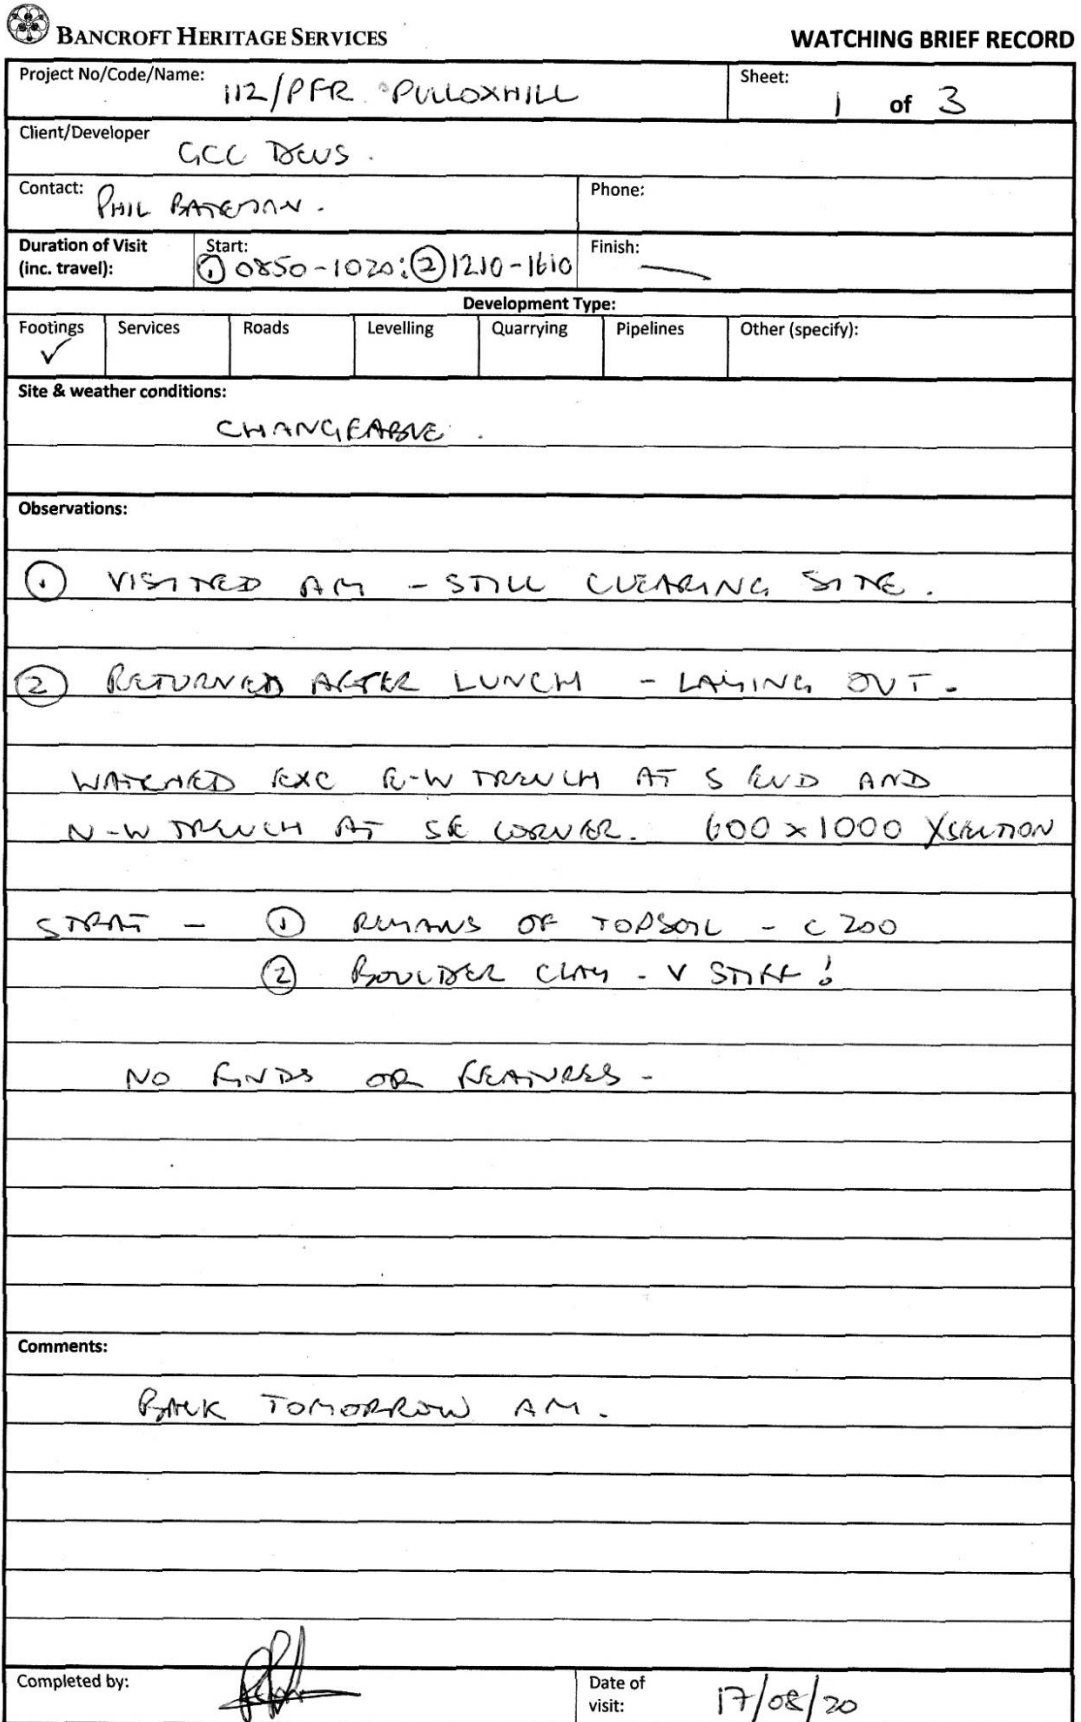 BANCROFT HERITAGE SERVICES
WATCHING BRIEF RECORD
Project No/Code/Name: 112/PFR PULLOXHILL
Sheet: 1 of 3
Client/Developer GCC DEVS.
Contact: PHIL BATEMAN.
Phone:
Duration of Visit (inc. travel):
Start: ① 0850-1020: ② 1210-1610
Finish: —
Development Type:
Footings ✓ Services Roads Levelling Quarrying Pipelines Other (specify):
Site & weather conditions:
CHANGEABLE.
Observations:
① VISITED AM - STILL CLEARING SITE.
② RETURNED AFTER LUNCH - LAYING OUT.
WATCHED EXC E-W TRENCH AT S END AND
N-W TRENCH AT SE CORNER. 600 x 1000 XSECTION
STRAT - ① REMAINS OF TOPSOIL - C 200
② BOULDER CLAY - V STIFF!
NO FINDS OR FEATURES -
Comments:
BACK TOMORROW AM.
Completed by:
Date of visit: 17/08/20